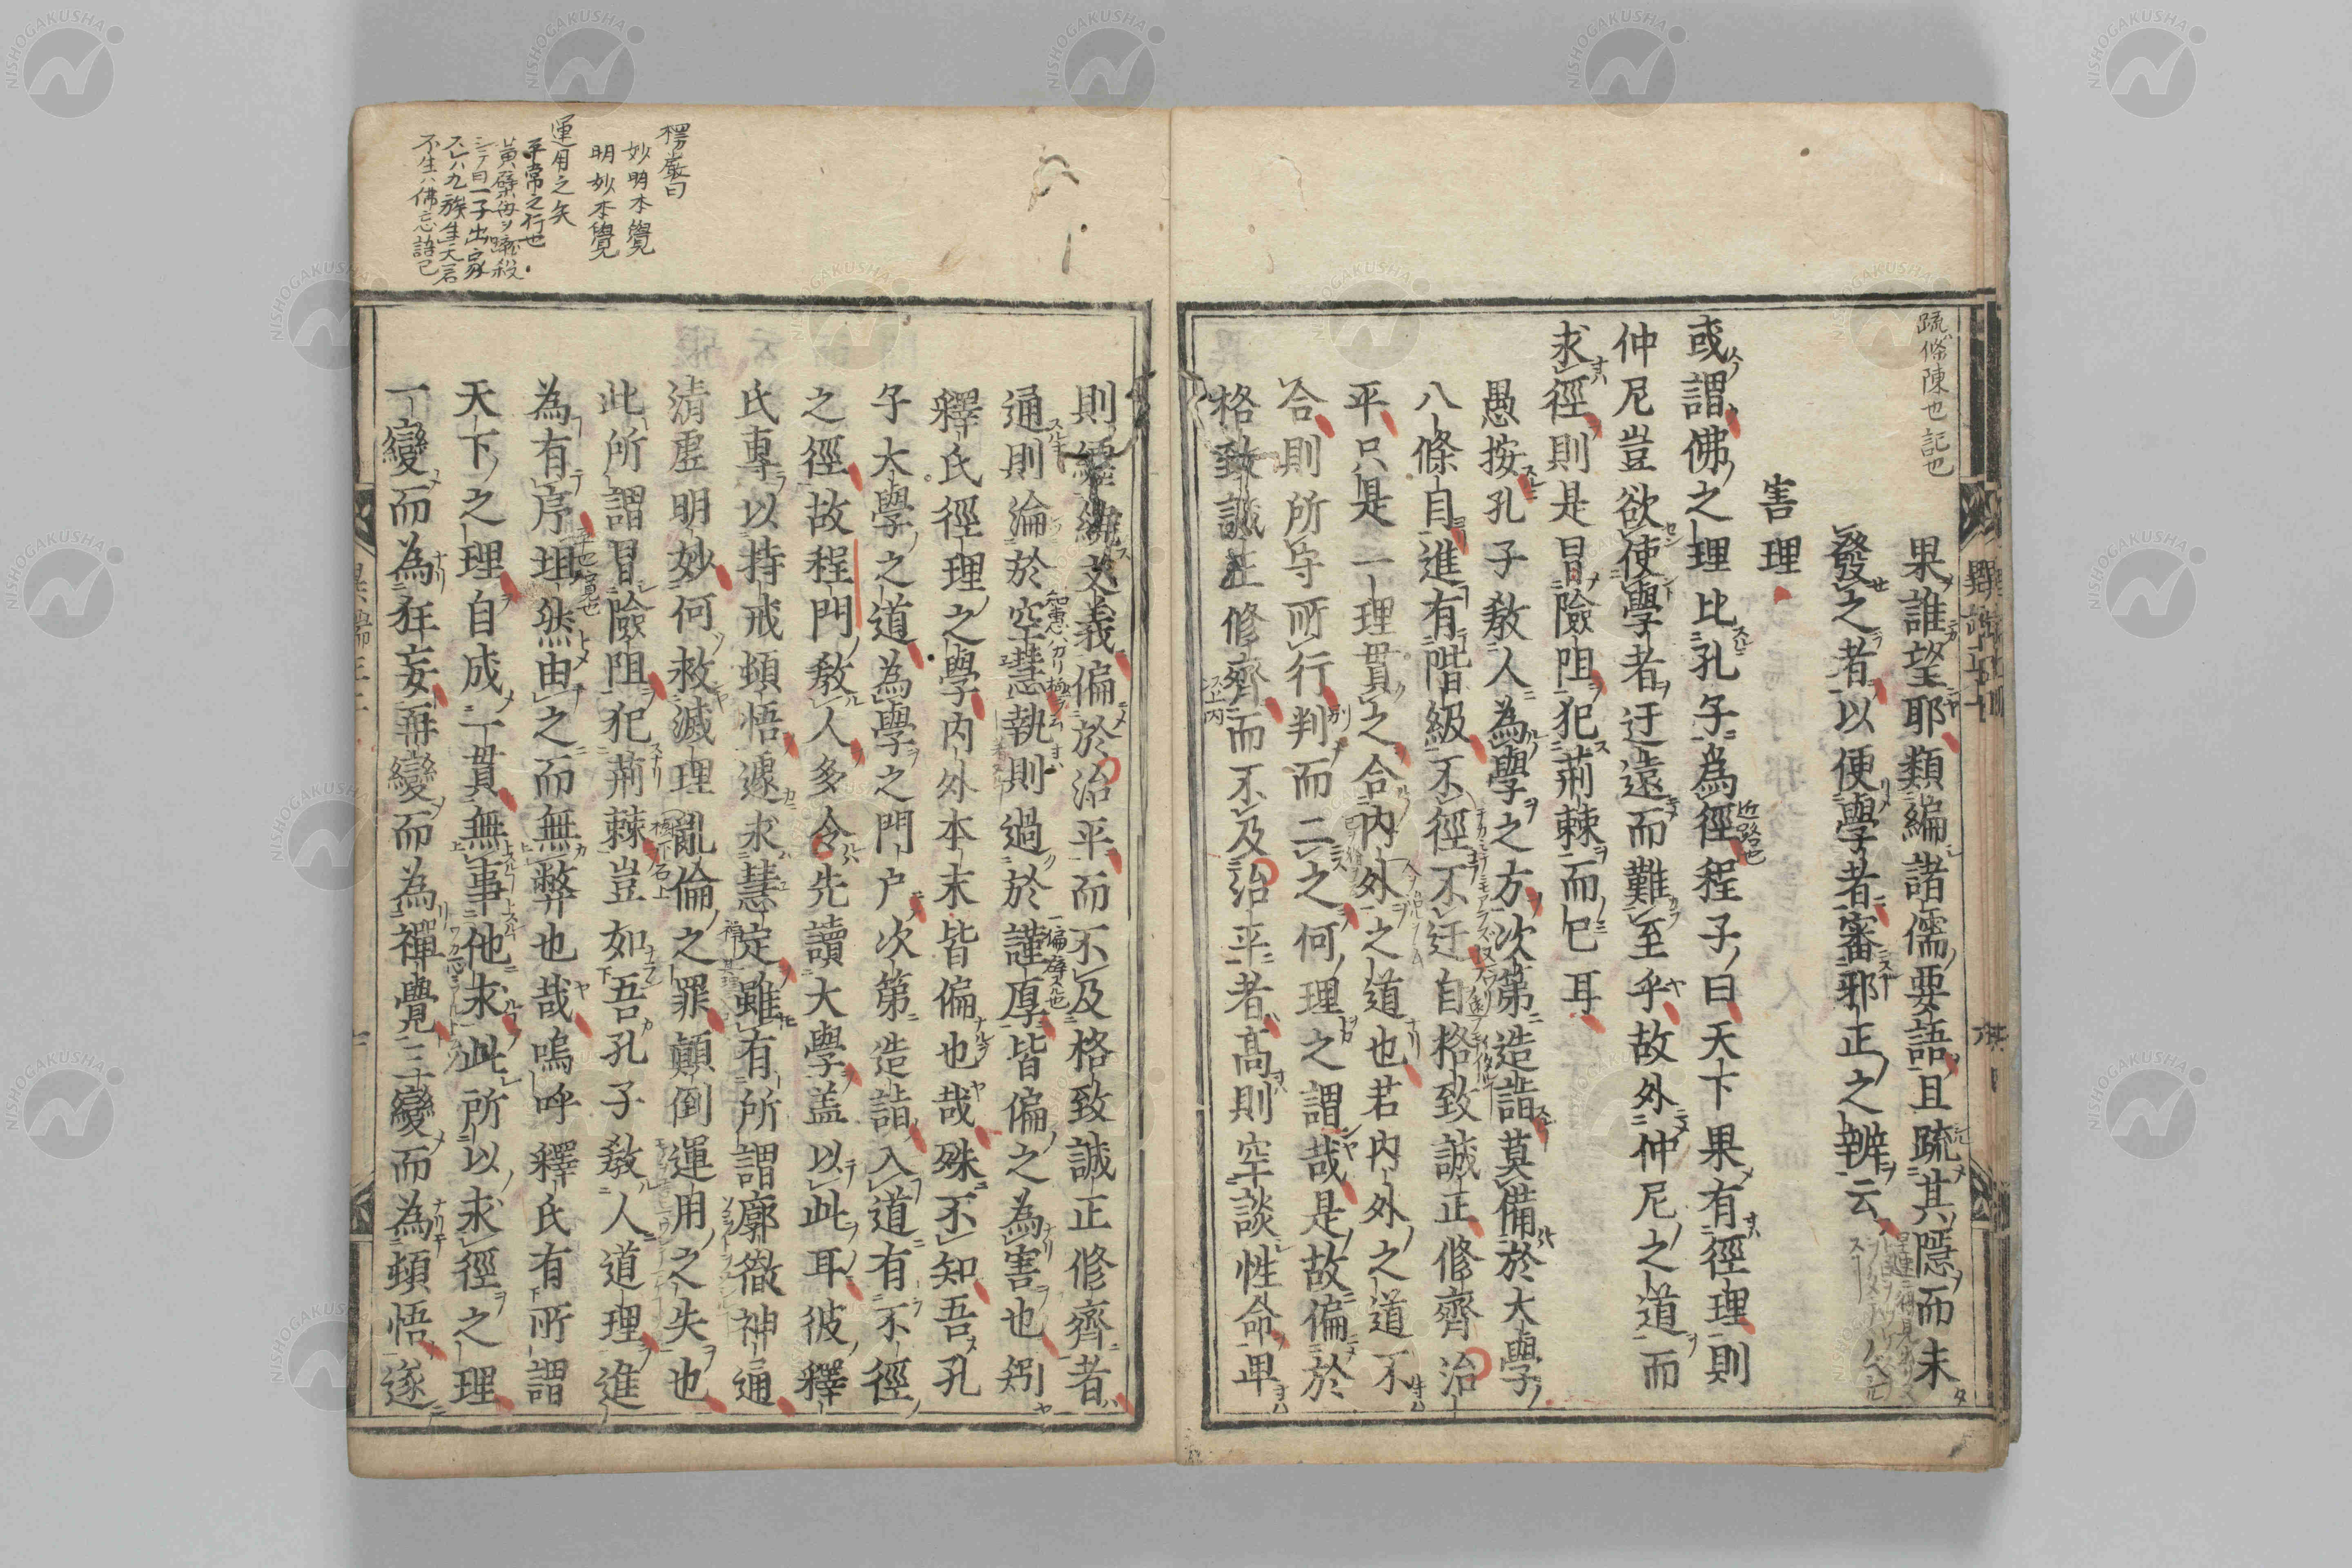 果誰望耶類編諸儒要語且疏其隱而未
發之者以便學者審邪正之辨云
害理
或謂佛之理比孔子為徑程子曰天下果有徑理則
仲尼豈欲使學者迂遠而難至乎故外仲尼之道而
求徑則是冒險阻犯荊棘而已耳
愚按孔子教人為學之方次第造詣莫備於大學
八條自進有階級不徑不迂自格致誠正修齊治
平只是一理貫之合內外之道也若內外之道不
合則所守所行判而二之何理之謂哉是故偏於
格致誠正修齊而不及治平者高則空談性命卑
則纏繞文義偏於治平而不及格致誠正修齊者
通則淪於空慧執則過於謹厚皆偏之為害也矧
釋氏徑理之學內外本末皆偏也哉殊不知吾孔
子大學之道為學之門户次第造詣入道有不徑
之徑故程門教人多令先讀大學盖以此耳彼釋
氏專以持戒頓悟遽求慧定雖有所謂廓徹神通
清虛明妙何救滅理亂倫之罪顛倒運用之失也
此所謂冒險阻犯荊棘豈如吾孔子教人道理進
為有序坦然由之而無弊也哉嗚呼釋氏有所謂
天下之理自成一貫無事他求此所以求徑之理
一變而為狂妄再變而為禪覺三變而為頓悟遂
疏條陳也記也
近路也
楞嚴曰
妙明本覺
明妙本覺
運用之失
平常之行也
不生ハ佛忘語已
NISHOGAKUSHA